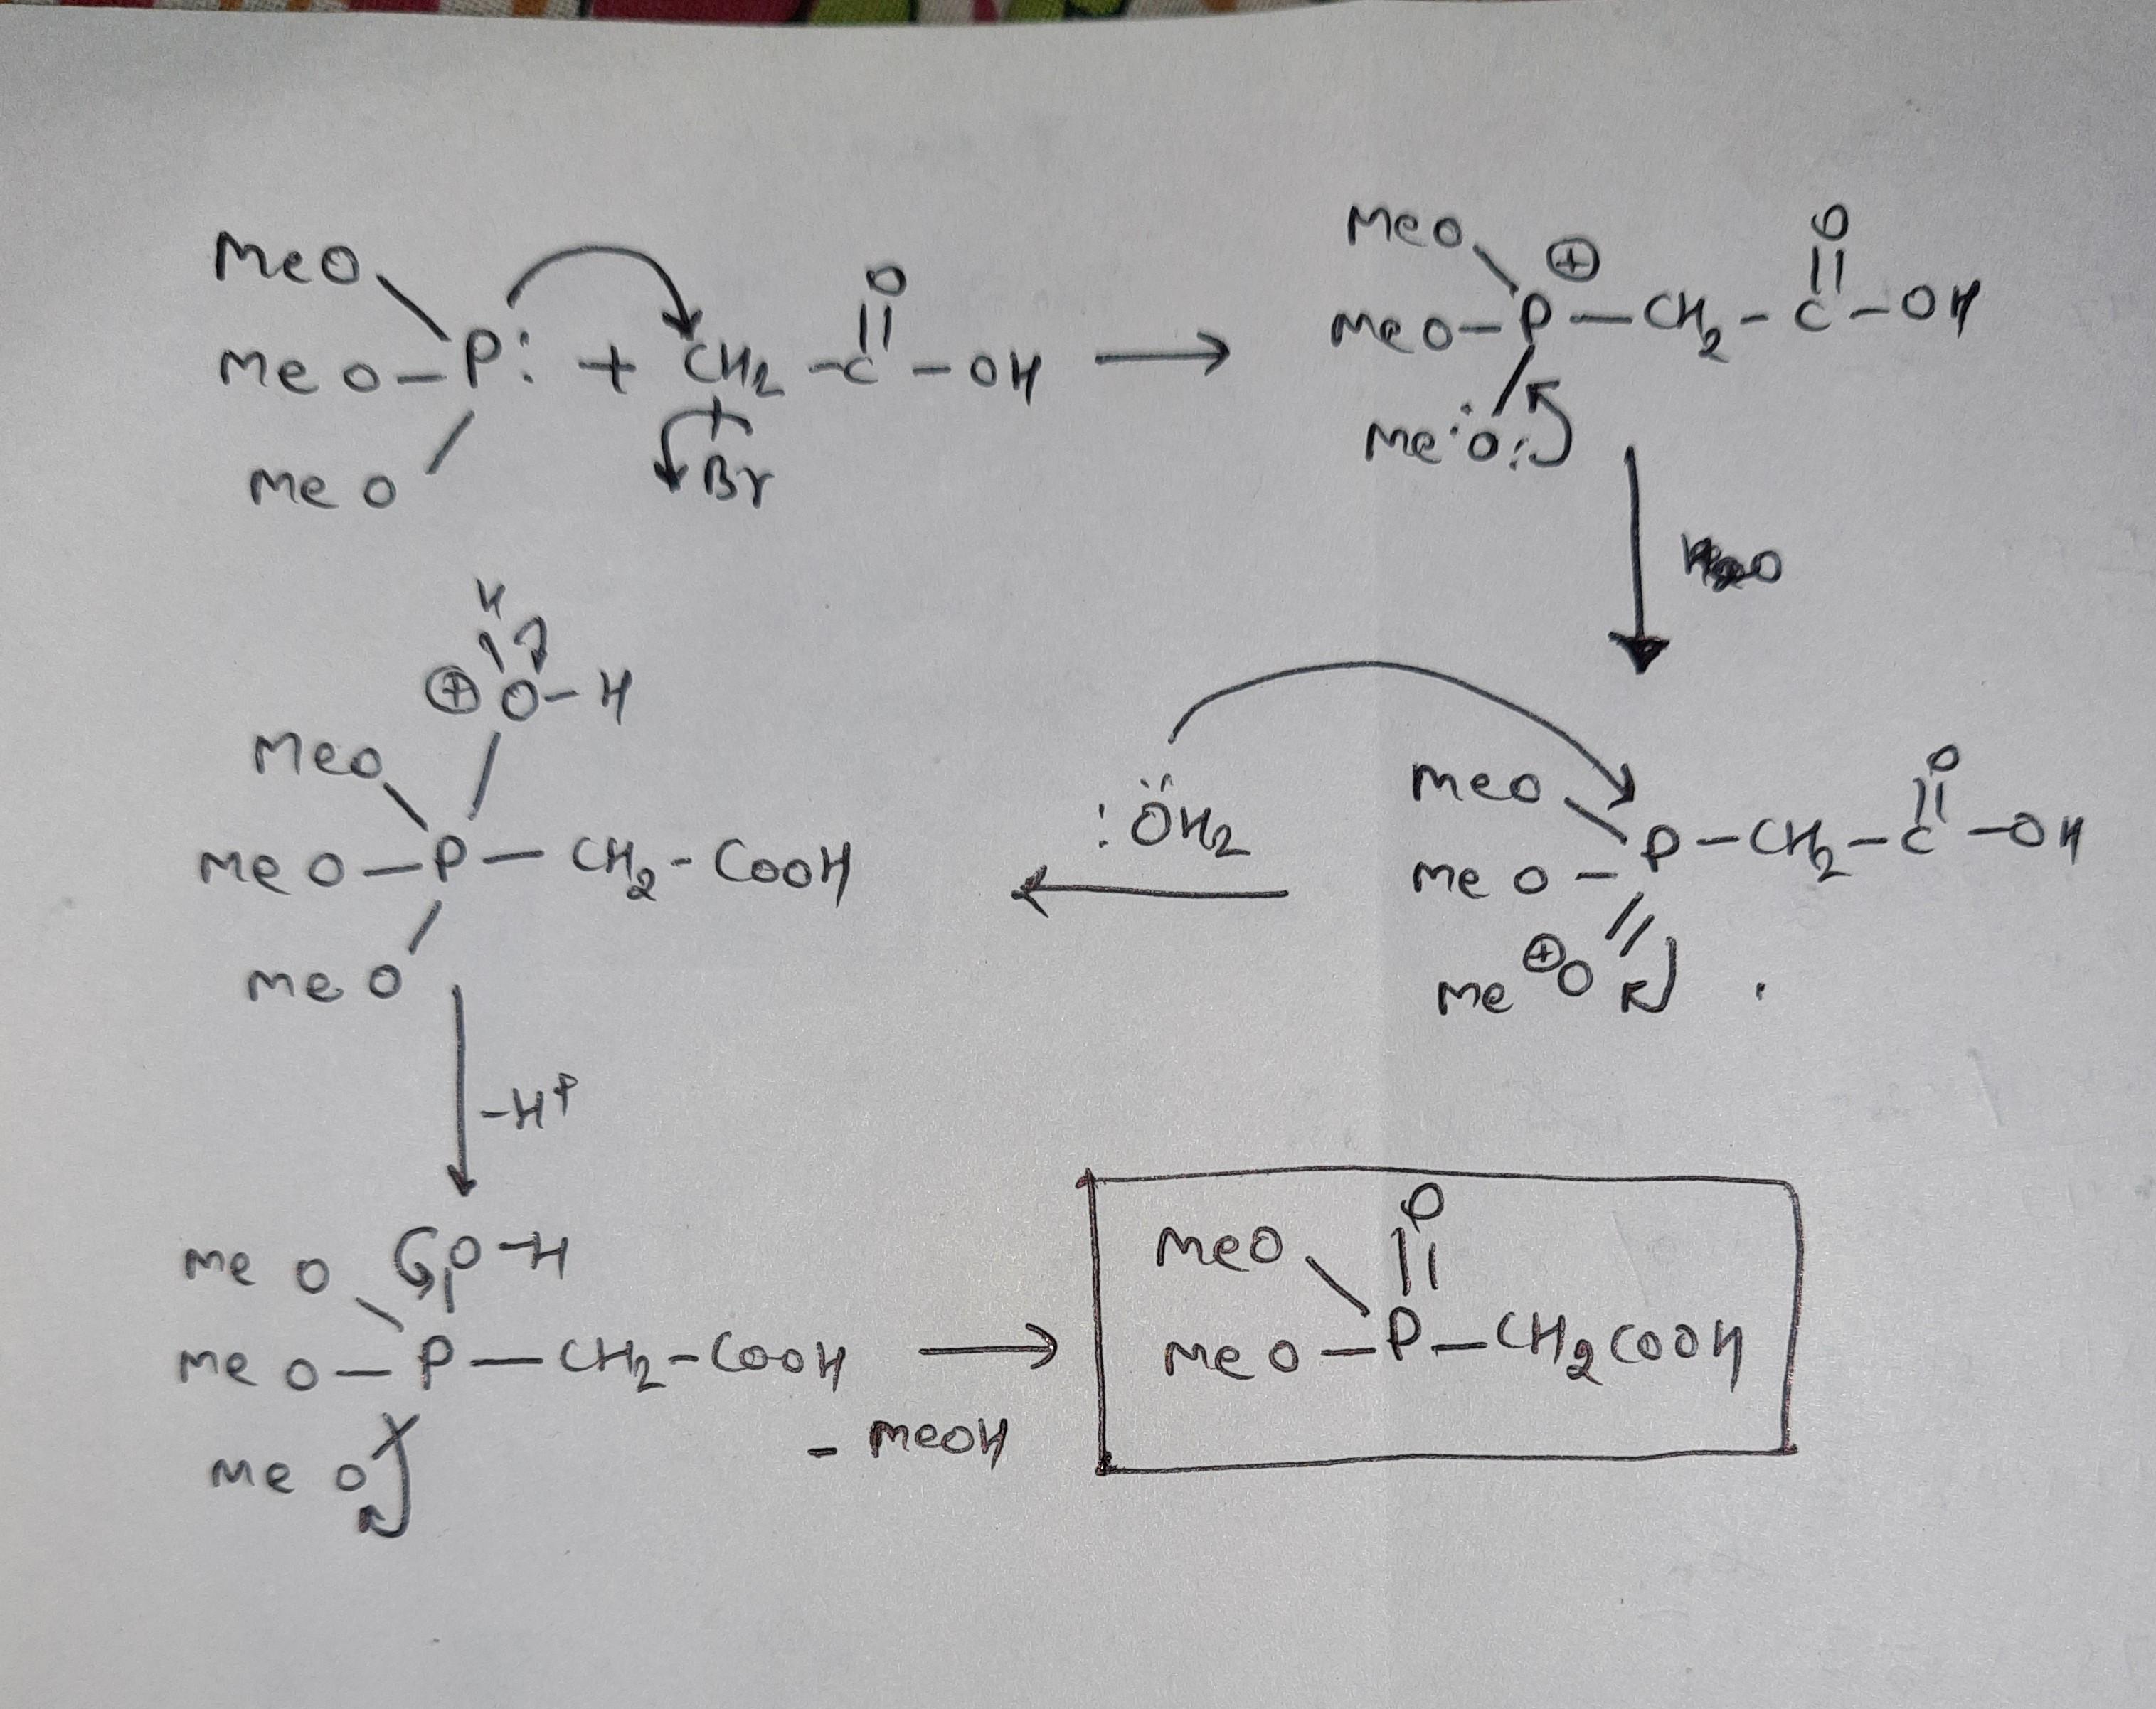 MeO O MeO ⊕ O
MeO–P: + CH2–C–OH → MeO–P–CH2–C–OH
MeO Br Me:O:
H
⊕O–H
MeO :ÖH2 MeO O
MeO–P–CH2–COOH ← MeO–P–CH2–C–OH
MeO Me⊕O
–H⊕
MeO O–H MeO O
MeO–P–CH2–COOH → MeO–P–CH2COOH
MeO – MeOH